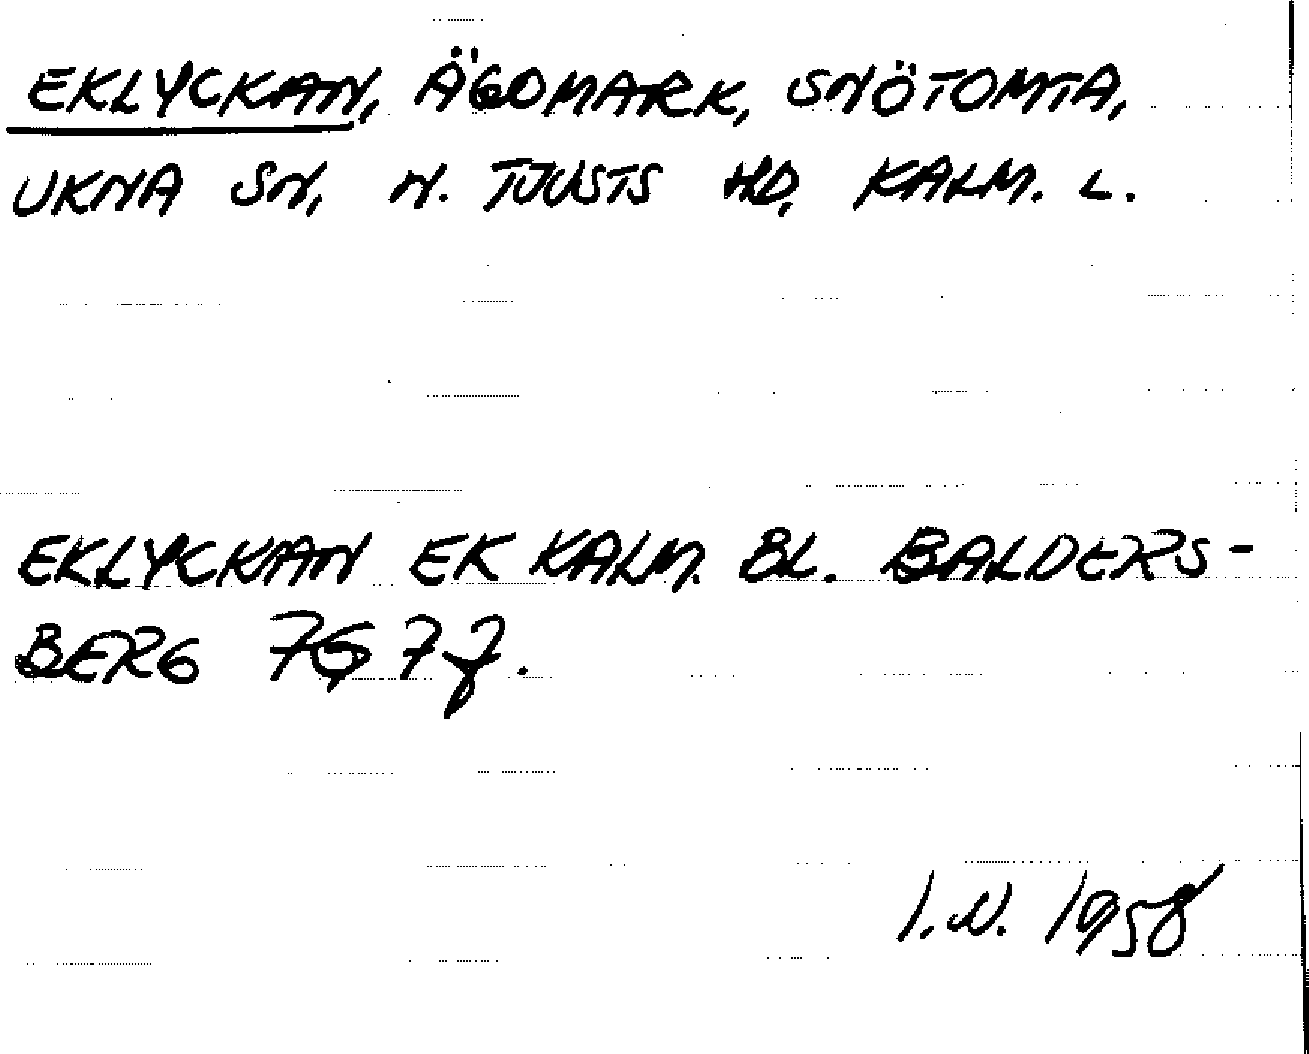 EKLYCKAN, ÄGOMARK, SNÖTOMTA,
UKNA SN, N. TJUSTS HD, KALM. L.
EKLYCKAN EK KALM. BL. BALDERS-
BERG 7G 7f.
I.N. 1958